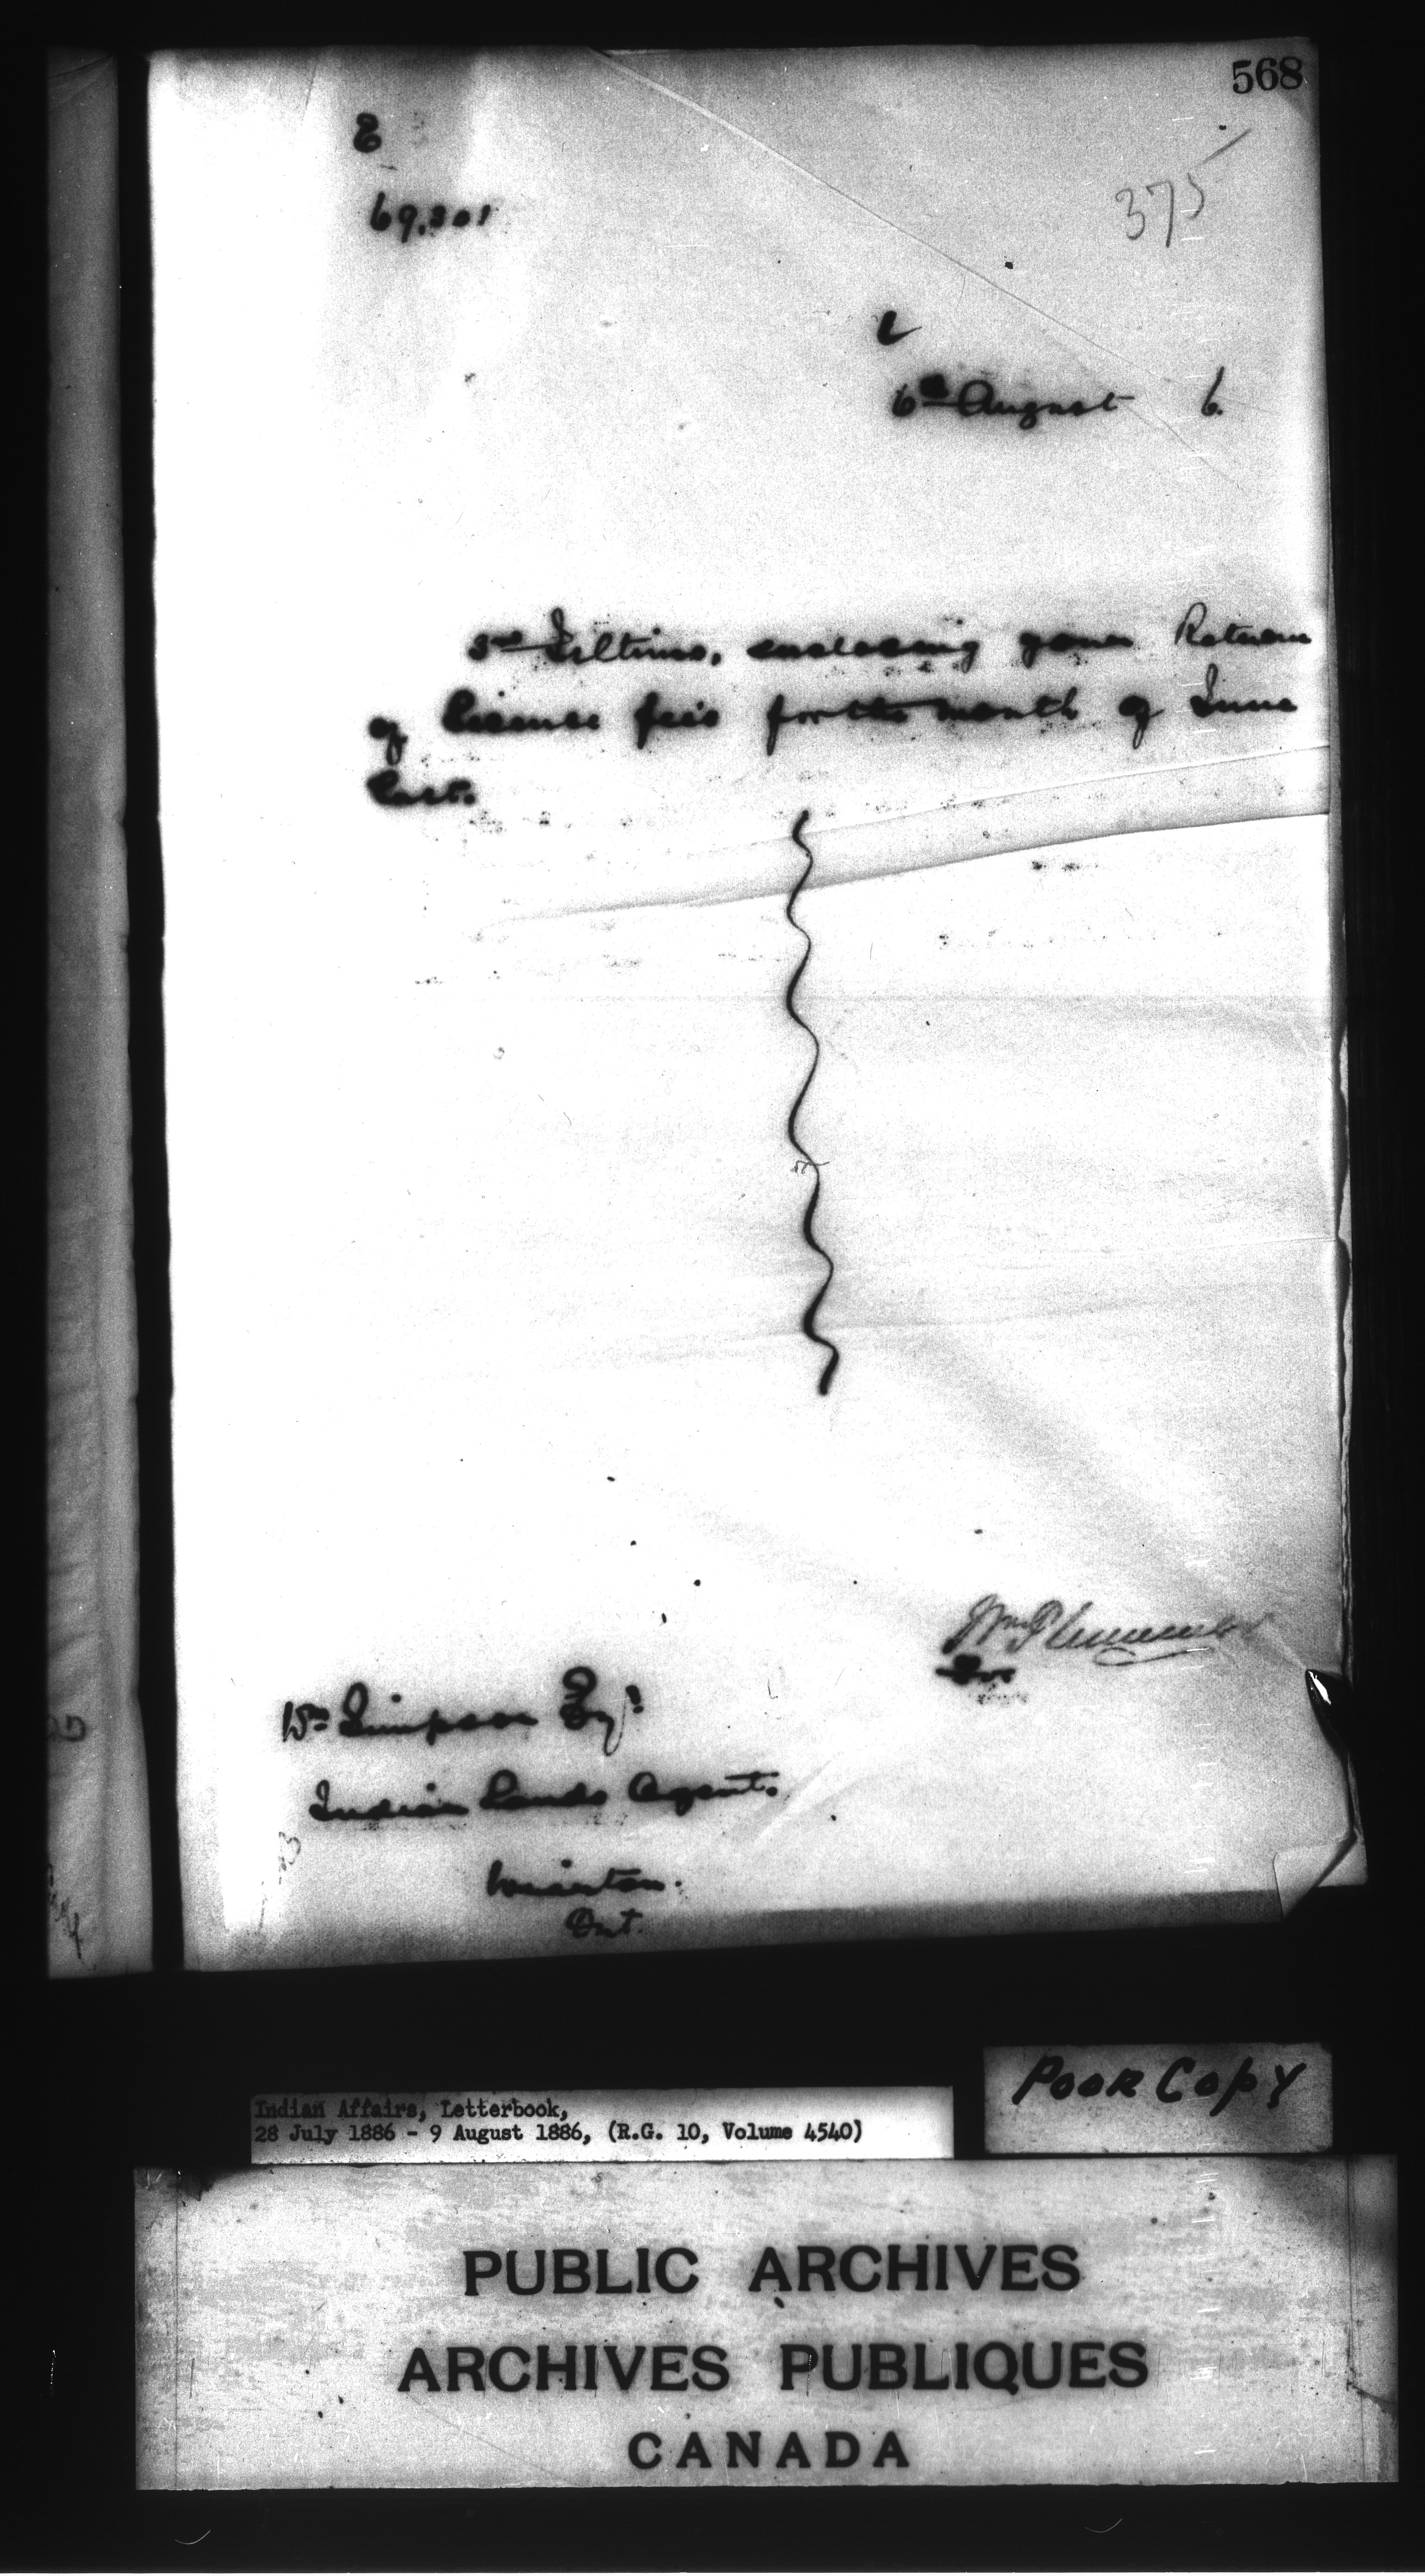 568
E
69,301
375
L
6th August 6.
3rd Ultimo, enclosing your Return
of License fees for the month of June
last.
Wm Plummer
For
Wm Simpson Esqr
Indian Lands Agent.
Wiarton.
Ont.
Poor Copy
Indian Affairs, Letterbook,
28 July 1886 - 9 August 1886, (R.G. 10, Volume 4540)
PUBLIC ARCHIVES
ARCHIVES PUBLIQUES
CANADA